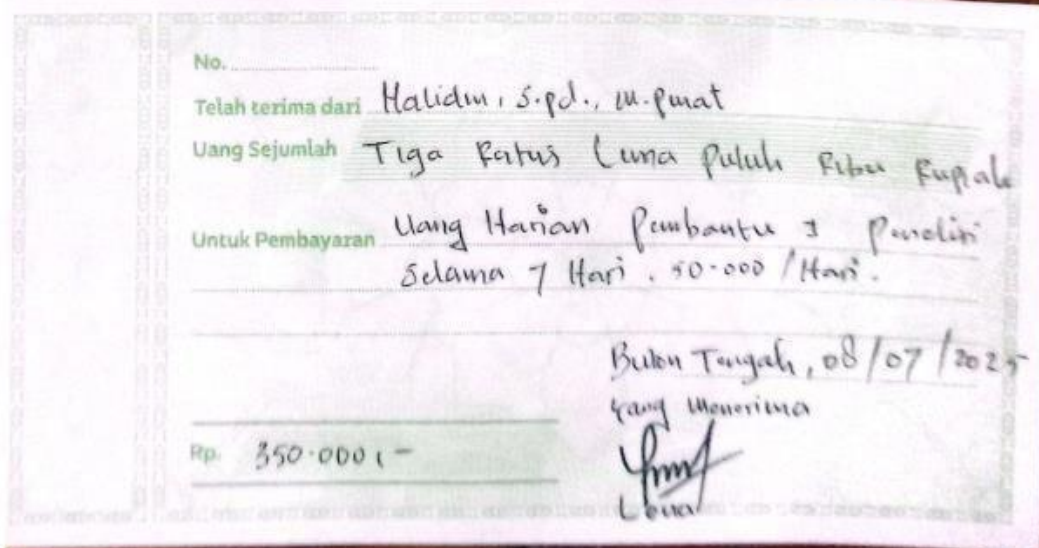 No.
Telah terima dari Halidin, S.pd., M.pmat
Uang Sejumlah Tiga Ratus Lima Puluh Ribu Rupiah
Untuk Pembayaran Uang Harian Pembantu Peneliti
Selama 7 Hari . 50.000 / Hari .
Buton Tengah, 08/07/2025
Yang Menerima
Rp. 350.000,-